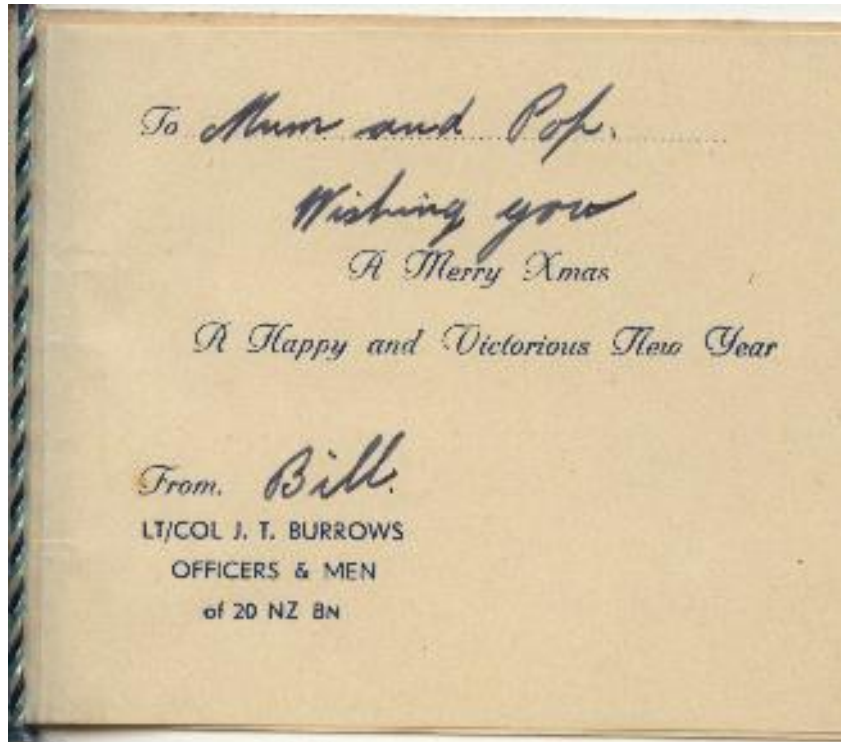 To Mum and Pop.
Wishing you
A Merry Xmas
A Happy and Victorious New Year
From. Bill.
LT/COL J. T. BURROWS
OFFICERS & MEN
of 20 NZ BN